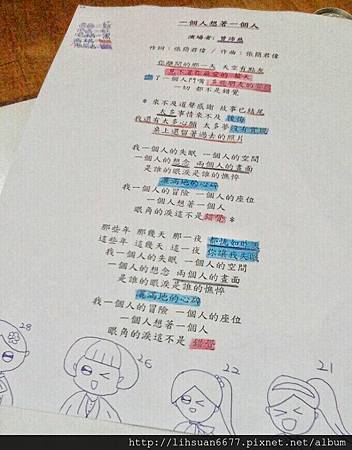 一個人想著一個人
演唱者：曾沛慈
作詞：張簡君偉 / 作曲：張簡君偉
你離開的那一天 天空有點灰
你最愛的 藍天
了一個人鬥嘴
一切 都不是錯覺
* 來不及道聲感謝 故事已結尾
太多事情來不及 後悔
我還有太多心願 太多夢 沒有實現
桌上還留著過去的照片
我一個人的失眠 一個人的空間
一個人的想念 兩個人的畫面
是誰的眼淚是誰的憔悴
灑滿地的心碎
我一個人的冒險 一個人的座位
一個人想著一個人
眼角的淚這不是 錯覺 *
那些年 那幾天 那一夜 都
這些年 這幾天 這一夜 你讓我失眠
我一個人的失眠 一個人的空間
一個人的想念 兩個人的畫面
是誰的眼淚是誰的憔悴
灑滿地的心碎
我一個人的冒險 一個人的座位
一個人想著一個人
眼角的淚這不是 錯覺
28
26
22
21
http://lihsuan6677.pixnet.net/album